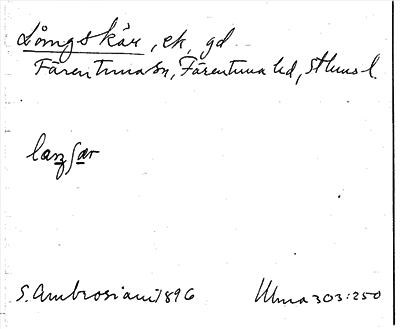 Långskär, ek, gd
Färentuna sn, Färentuna hd, Sthms l.
lanʃar
S. Ambrosiani 1896 Ulma 303:250